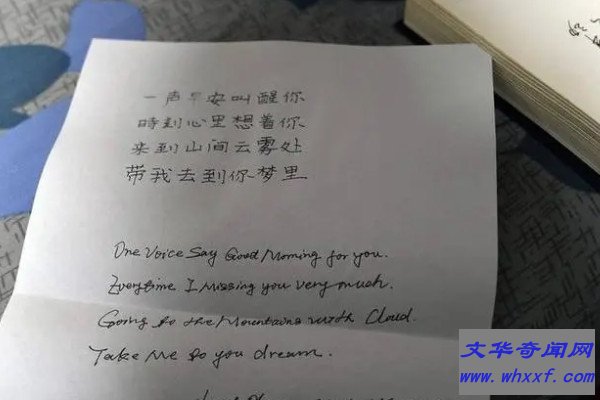 一声早安叫醒你
時刻心里想着你
来到山间云雾处
带我去到你梦里
One Voice Say Good Morning for you.
Everytime I Missing you very much.
Going to the Mountains with Cloud.
Take Me to you dream.
文华奇闻网
www.whxxf.com